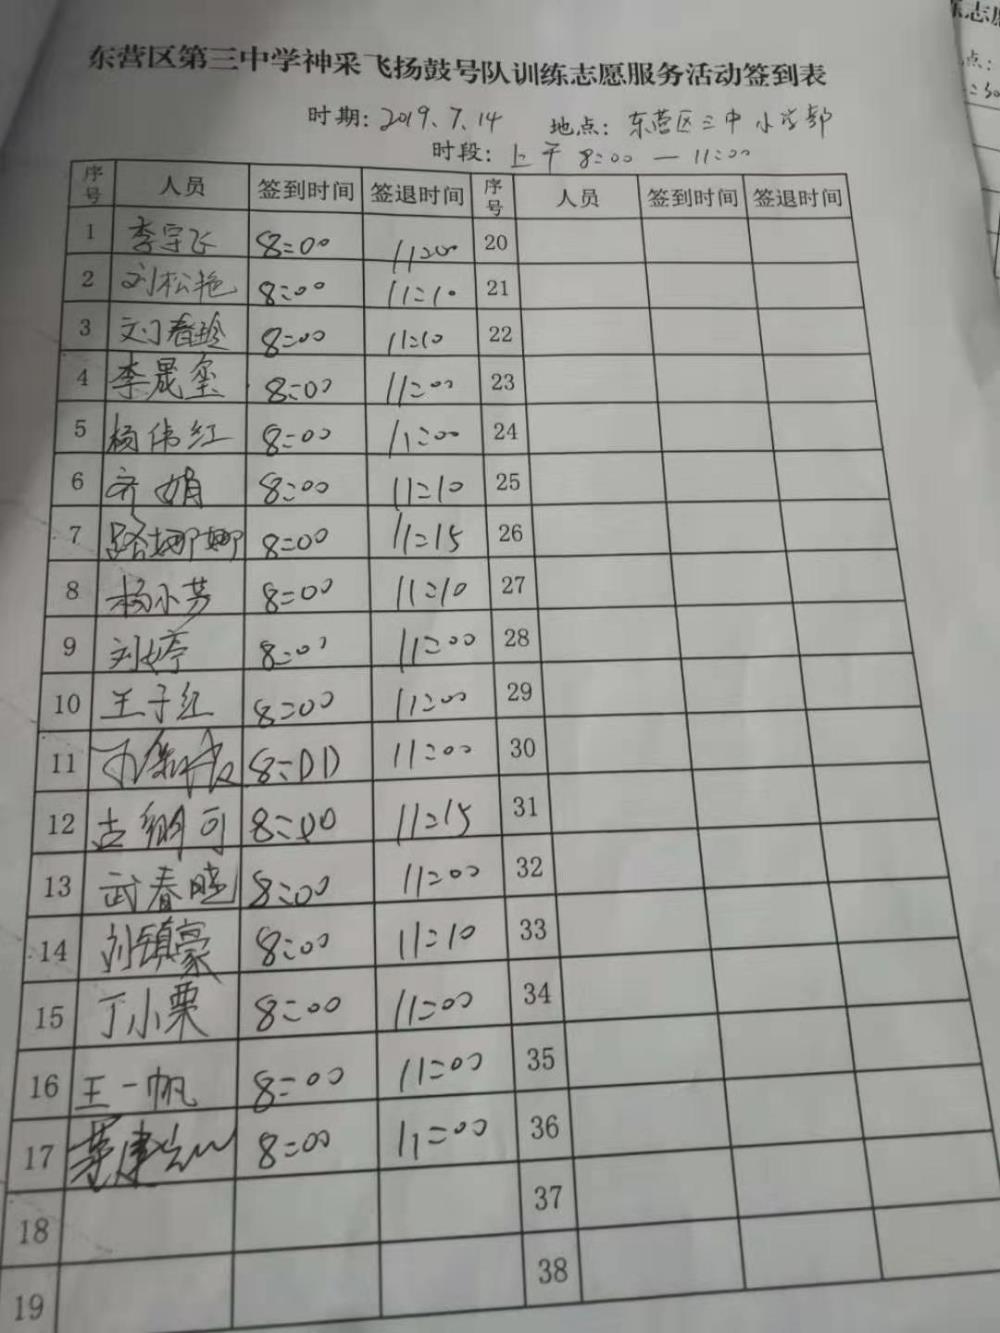 东营区第三中学神采飞扬鼓号队训练志愿服务活动签到表
时期: 2019.7.14 地点: 东营区三中小学部
时段: 上午 8:00 — 11:00
序号 人员 签到时间 签退时间 序号 人员 签到时间 签退时间
1 李宇飞 8:00 11:00 20
2 刘松艳 8:00 11:10 21
3 刘春玲 8:00 11:10 22
4 李晟玺 8:00 11:00 23
5 杨伟红 8:00 11:00 24
6 齐娟 8:00 11:10 25
7 路娜娜 8:00 11:15 26
8 杨小芳 8:00 11:10 27
9 刘婷 8:00 11:00 28
10 王子红 8:00 11:00 29
11 8:00 11:00 30
12 8:00 11:15 31
13 武春晓 8:00 11:00 32
14 刘镇豪 8:00 11:10 33
15 丁小栗 8:00 11:00 34
16 王一帆 8:00 11:00 35
17 8:00 11:00 36
18 37
19 38